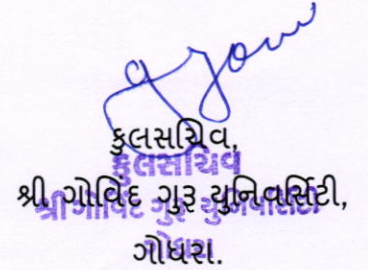 કુલસચિવ,
કુલસચિવ
શ્રી ગોવિંદ ગુરુ યુનિવર્સિટી,
શ્રી ગોવિંદ ગુરુ યુનિવર્સિટી
ગોધરા.
ગોધરા